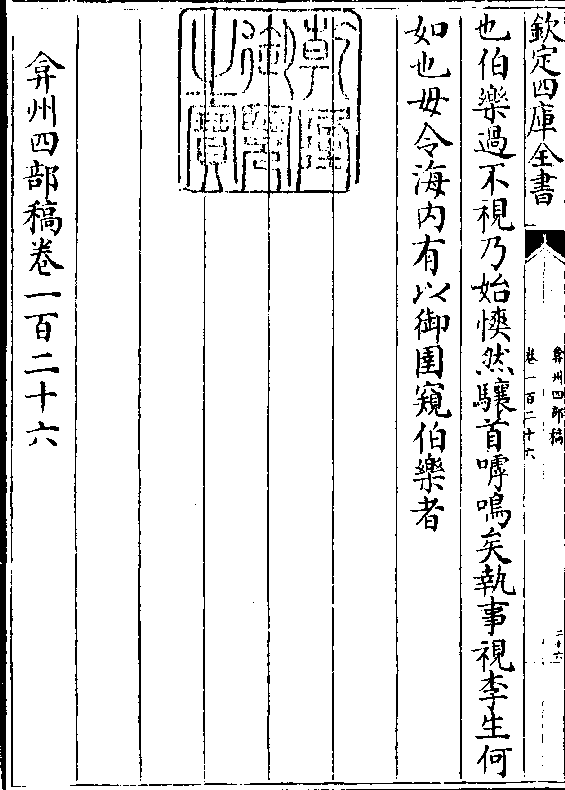 欽定四庫全書
弇州四部稿
卷一百二十六
二十六
也伯樂過不視乃始懊然驤首嘑鳴矣執事視李生何
如也毋令海内有以御圉窺伯樂者
乾隆
御覽
之寶
弇州四部稿卷一百二十六